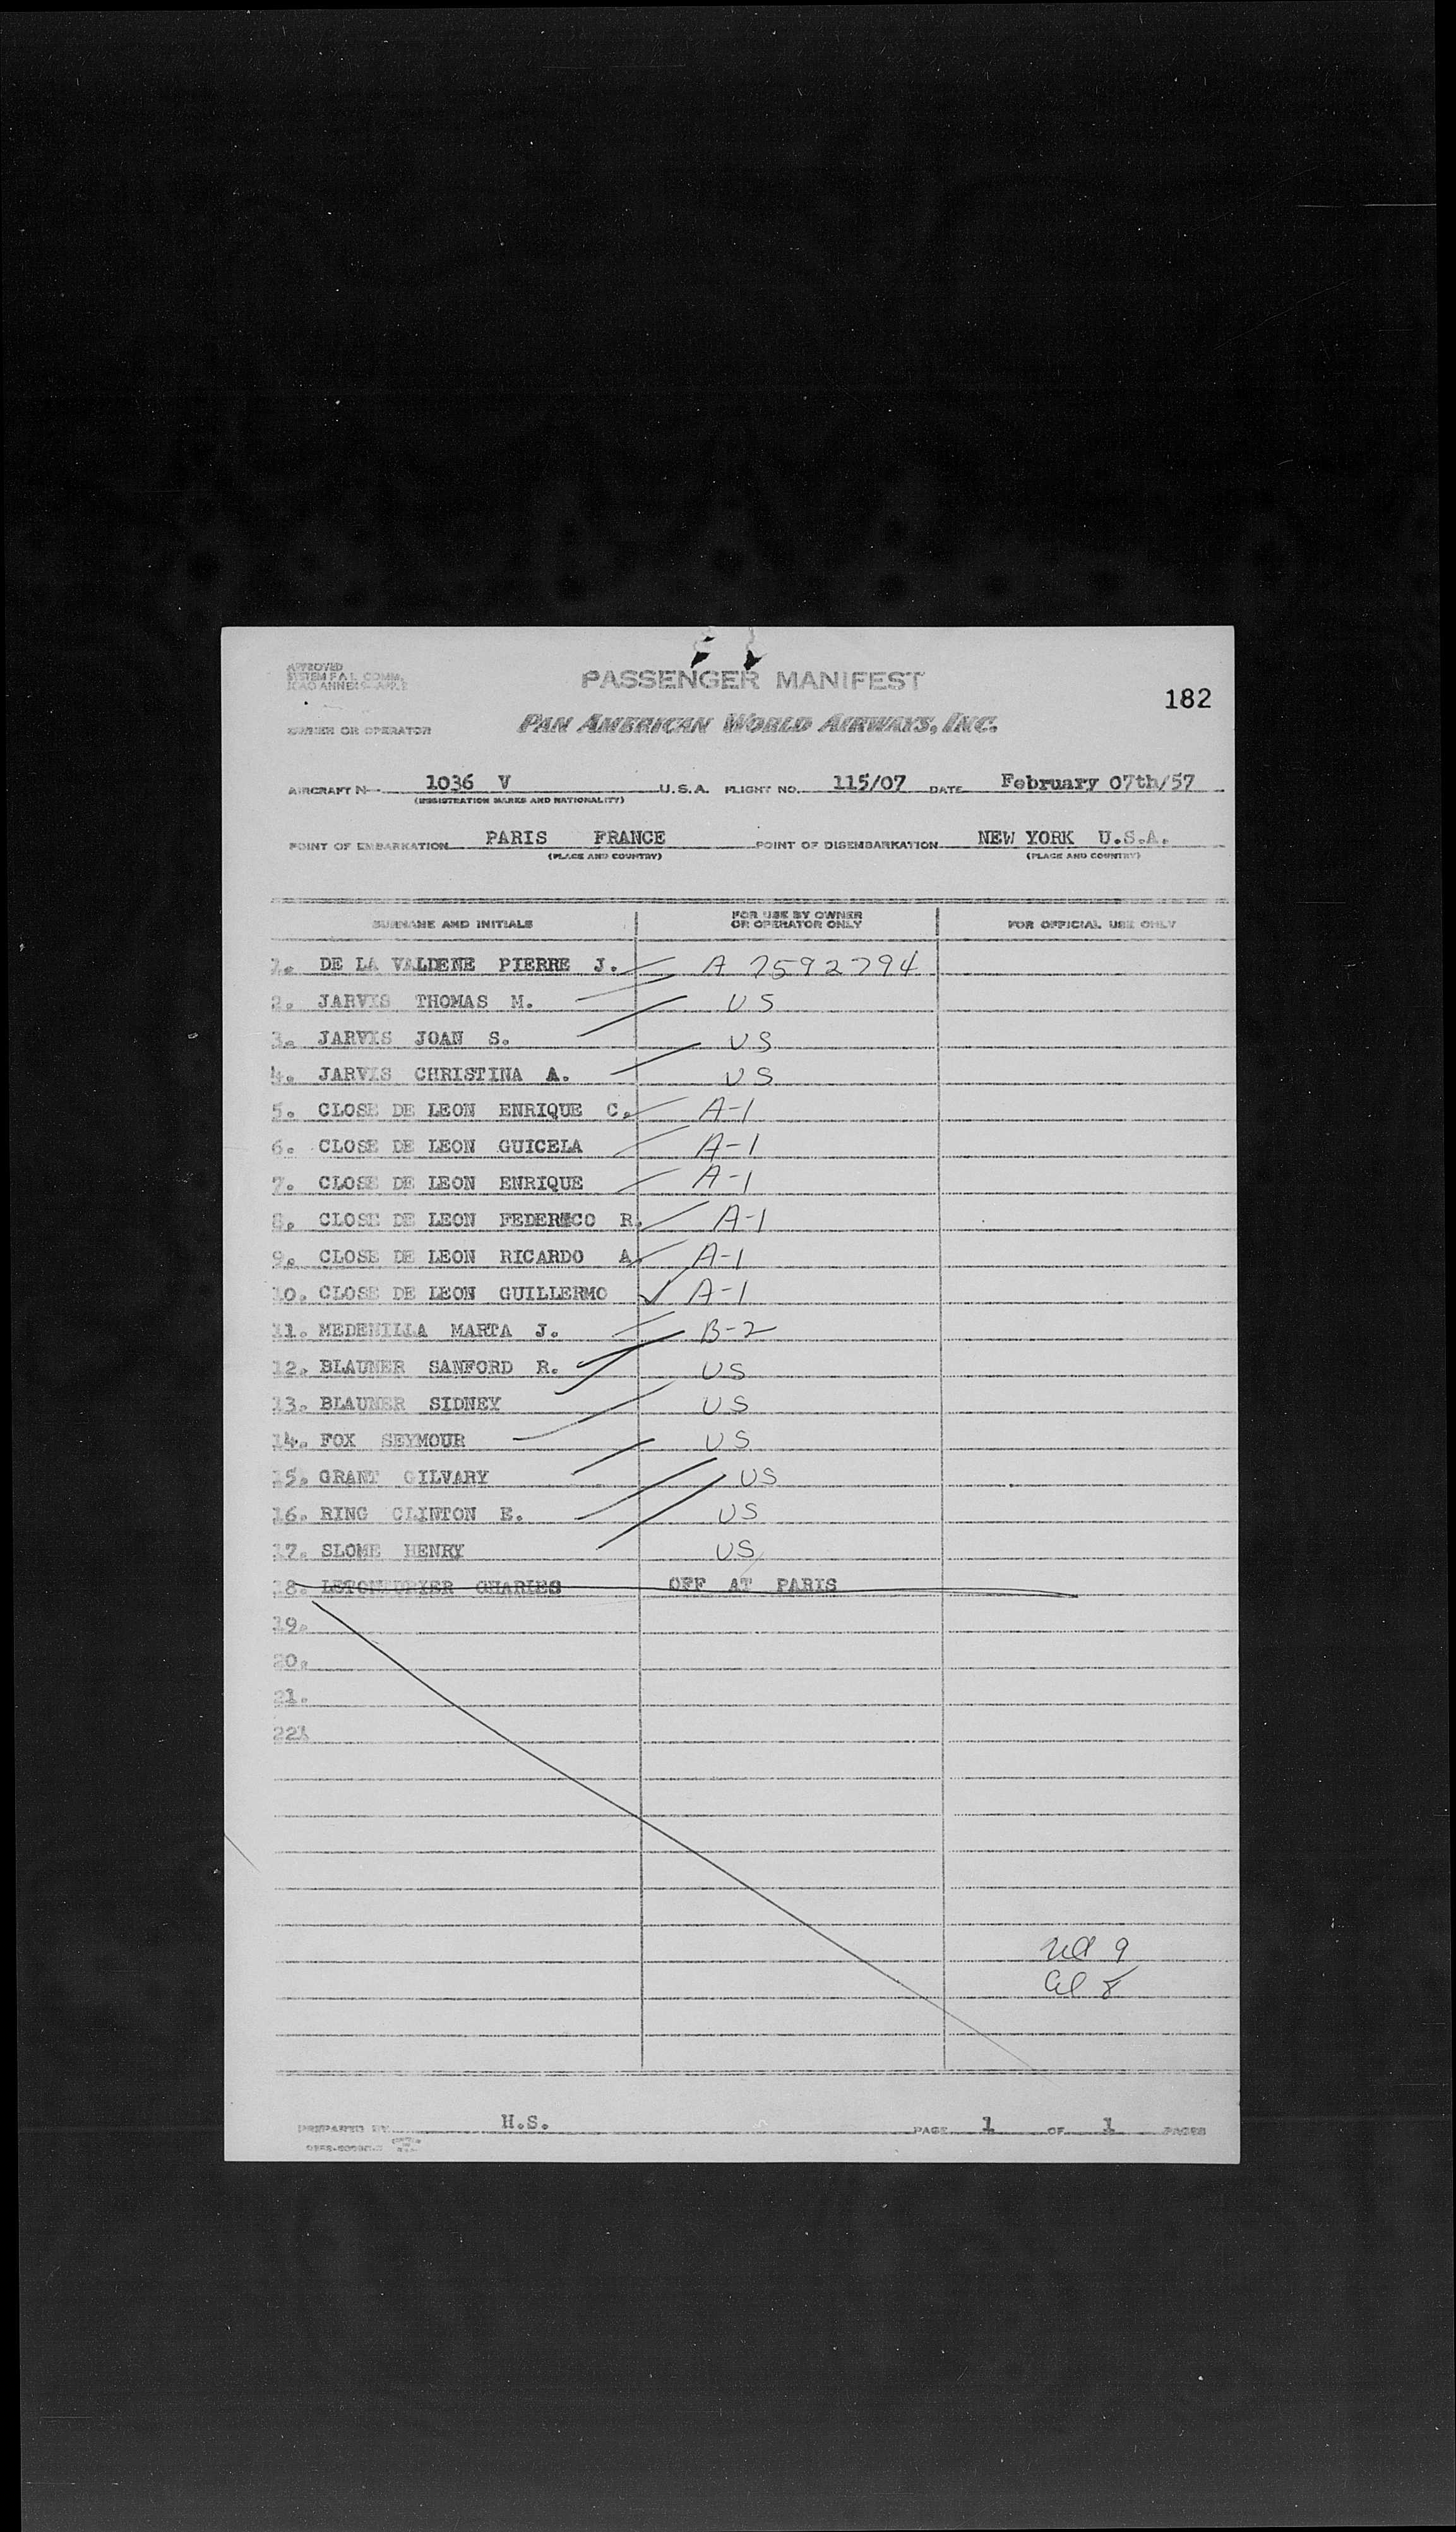 APPROVED
SYSTEM F.A.L. COMM.
ICAO ANNEX 9-APP. 2
PASSENGER MANIFEST
182
OWNER OR OPERATOR PAN AMERICAN WORLD AIRWAYS, INC.
AIRCRAFT N 1036 V U.S.A. FLIGHT NO. 115/07 DATE February 07th/57
(REGISTRATION MARKS AND NATIONALITY)
POINT OF EMBARKATION PARIS FRANCE POINT OF DISEMBARKATION NEW YORK U.S.A.
(PLACE AND COUNTRY) (PLACE AND COUNTRY)
SURNAME AND INITIALS FOR USE BY OWNER OR OPERATOR ONLY FOR OFFICIAL USE ONLY
1. DE LA VALDENE PIERRE J. A 7592794
2. JARVIS THOMAS M. US
3. JARVIS JOAN S. US
4. JARVIS CHRISTINA A. US
5. CLOSE DE LEON ENRIQUE C. A-1
6. CLOSE DE LEON GUICELA A-1
7. CLOSE DE LEON ENRIQUE A-1
8. CLOSE DE LEON FEDERICO R. A-1
9. CLOSE DE LEON RICARDO A. A-1
10. CLOSE DE LEON GUILLERMO A-1
11. MEDENILLA MARTA J. B-2
12. BLAUNER SANFORD R. US
13. BLAUNER SIDNEY US
14. FOX SEYMOUR US
15. GRANT GILVARY US
16. RING CLINTON E. US
17. SLOME HENRY US
18. CHARLES OFF AT PARIS
19.
20.
21.
22.
9
al 8
PREPARED BY H.S. PAGE 1 OF 1 PAGES